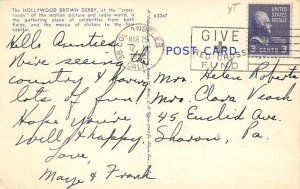 The HOLLYWOOD BROWN DERBY, at the "cross-
roads" of the motion picture and radio world, is
the gathering place of celebrities from both
fields, and the mecca of visitors to the film
capital.
K3367
POST CARD
LOS ANGELES
MAR 25
CALIF.
GIVE
RED CROSS
FUND
UNITED STATES
POSTAGE
3 CENTS 3
Hello Aunties
We're seeing the
country & having
lots of fun!
Hope you're
well & happy.
Love,
Maye & Frank
Mrs. Helen Roberts
Mrs. Clara Veach
45 Euclid Ave.
Sharon, Pa.